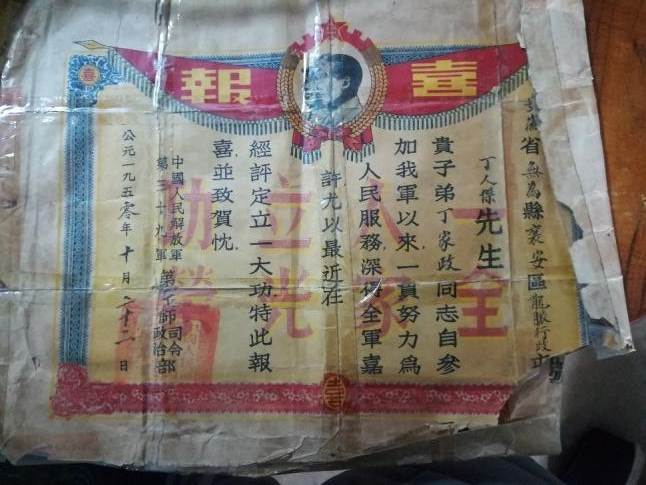 喜報
省無為縣襄安區
丁人傑先生
貴子弟丁家政同志自參
加我軍以來一貫努力為
人民服務深得全軍嘉
許尤以最近在
經評定立一大功特此報
喜並致賀忱
中國人民解放軍
第三十九軍
師司令
政治部
公元一九五零年十月二十一日
一人立功
全家光榮